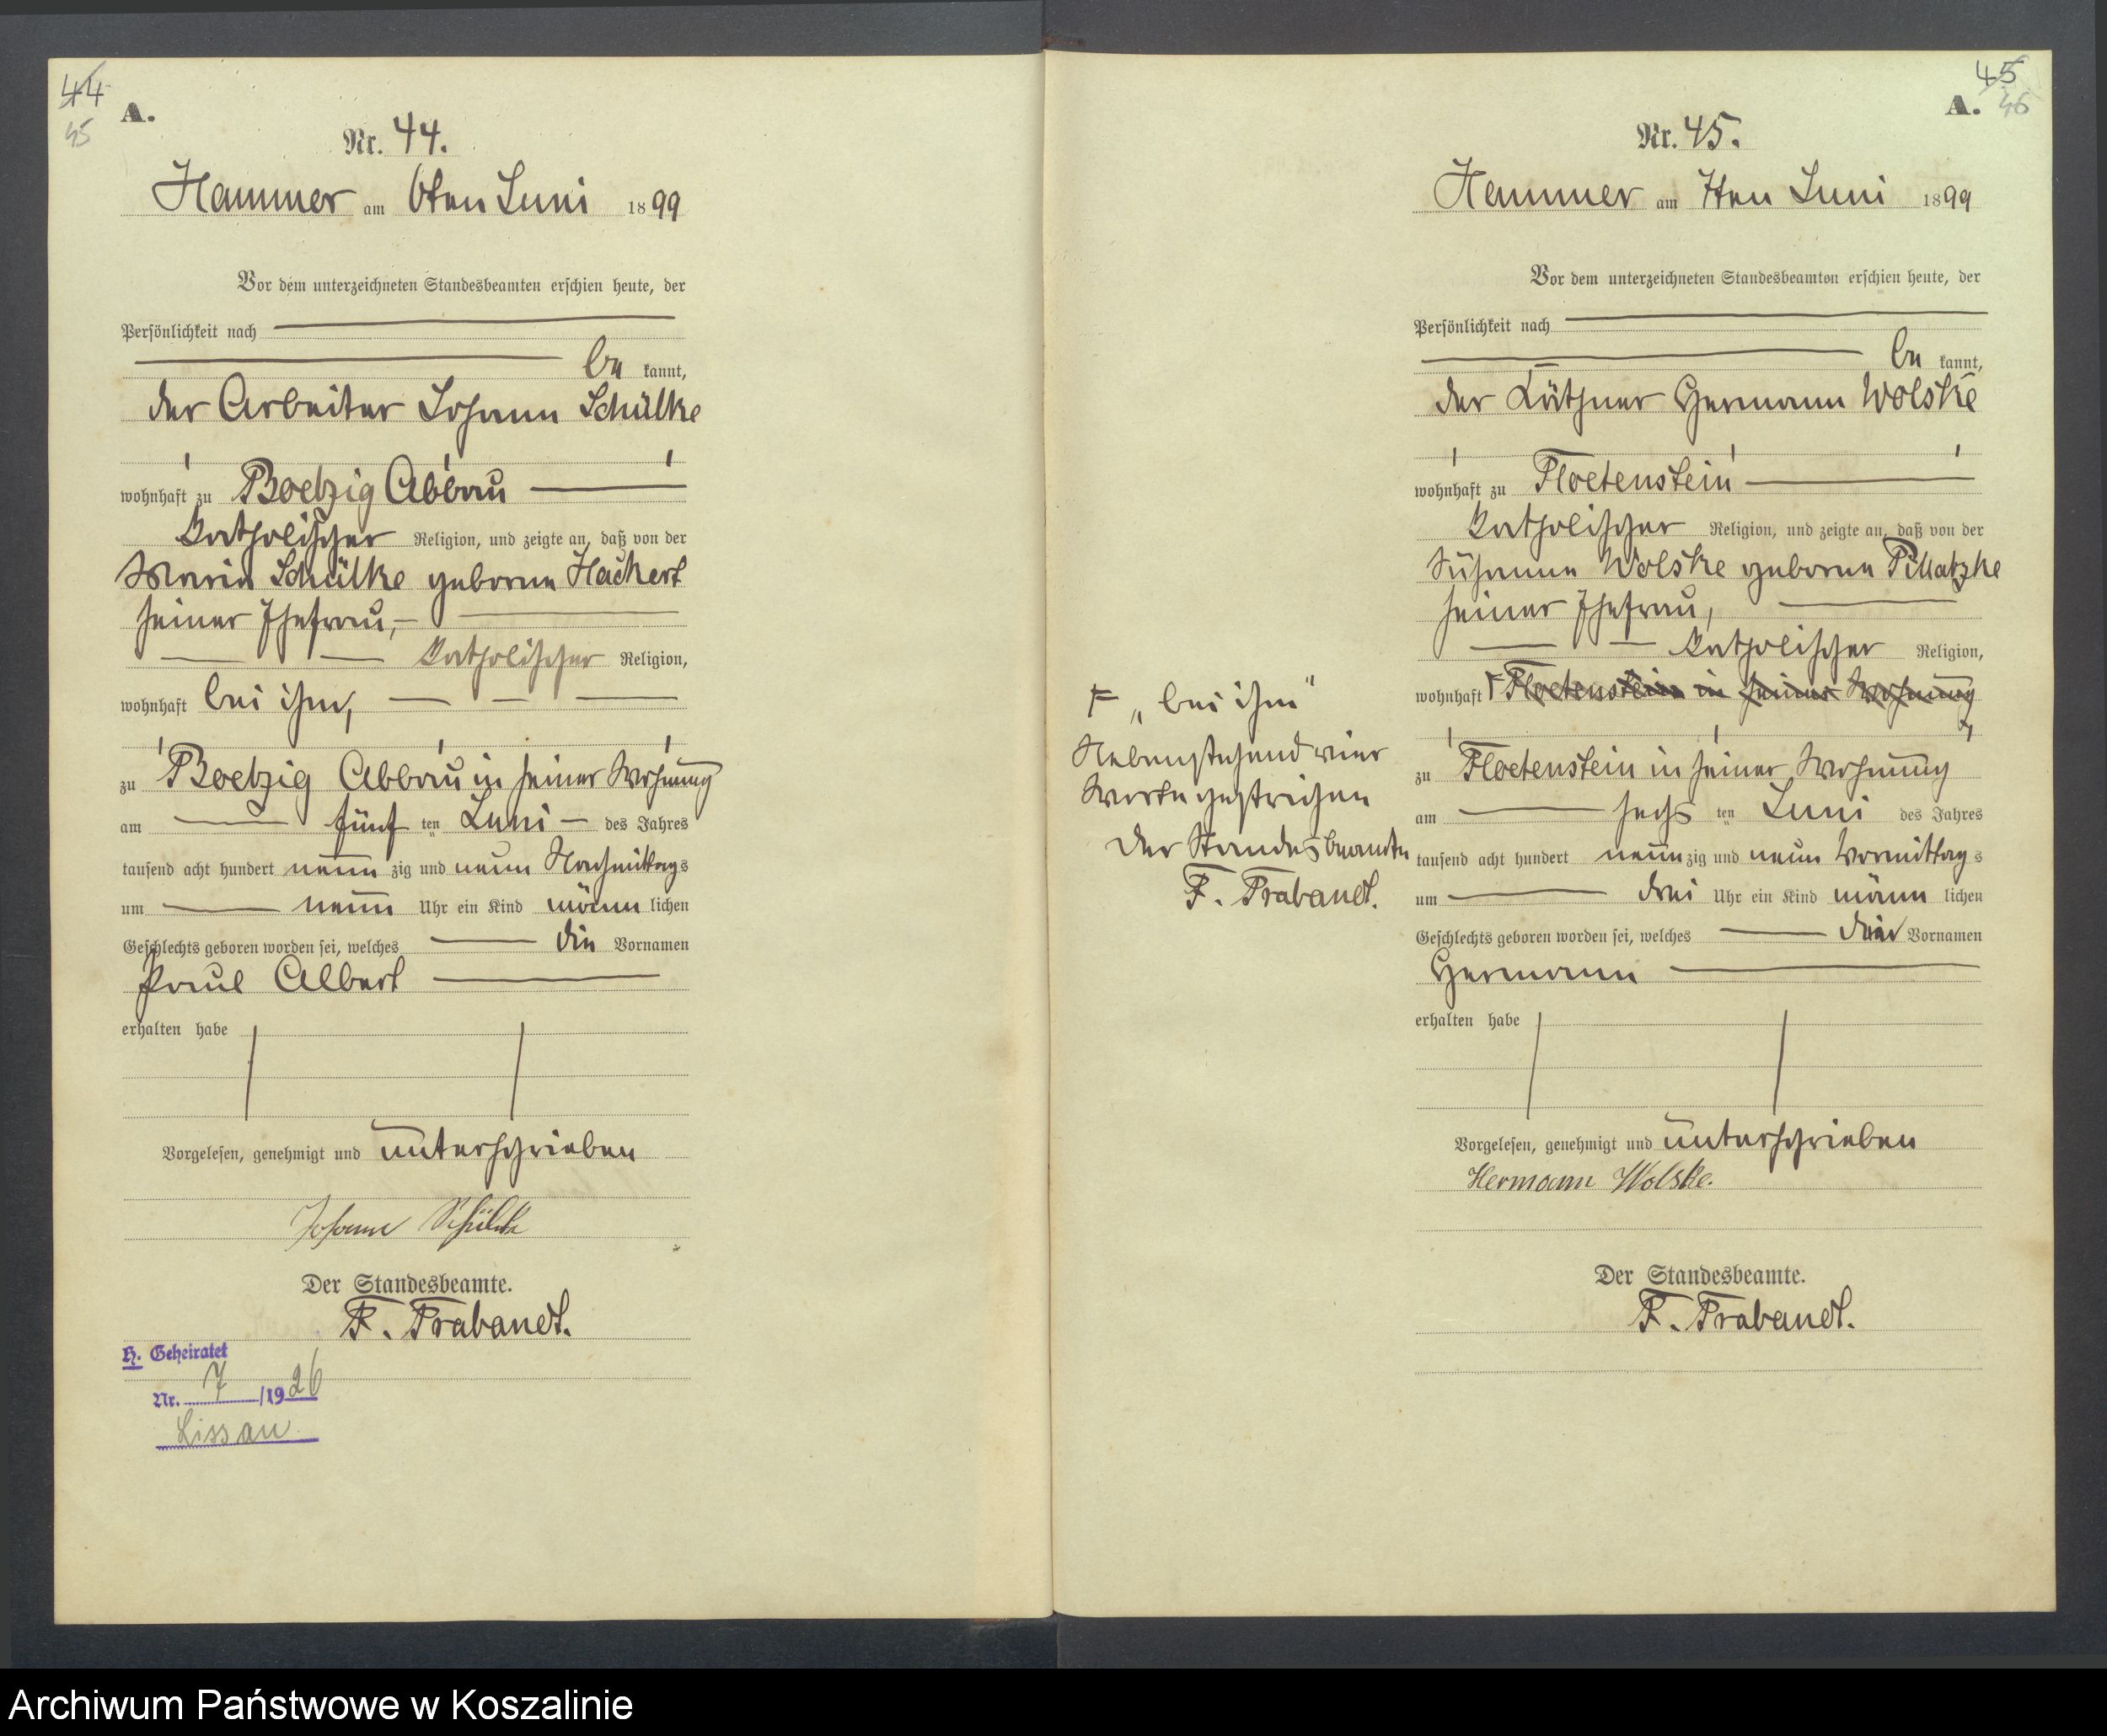 44
45
A.
Nr. 44.
Hammer am 6ten Juni 1899
Vor dem unterzeichneten Standesbeamten erschien heute, der
Persönlichkeit nach
be kannt,
der Arbeiter Johann Schülke
wohnhaft zu Boelzig Abbau
katholischer Religion, und zeigte an, daß von der
Maria Schülke geborne Hackert
seiner Ehefrau,
katholischer Religion,
wohnhaft bei ihm,
zu Boelzig Abbau in seiner Wohnung
am fünf ten Juni des Jahres
tausend acht hundert neun zig und neun Nachmittags
um neun Uhr ein Kind männ lichen
Geschlechts geboren worden sei, welches die Vornamen
Paul Albert
erhalten habe
Vorgelesen, genehmigt und unterschrieben
Johann Schülke
Der Standesbeamte.
F. Trabandt.
H. Geheiratet
Nr. 7 /1926
Lissau
45
46
A.
Nr. 45.
Hammer am 7ten Juni 1899
Vor dem unterzeichneten Standesbeamten erschien heute, der
Persönlichkeit nach
be kannt,
der Käthner Hermann Wolske
wohnhaft zu Floetenstein
katholischer Religion, und zeigte an, daß von der
Susanna Wolske geborne Pillatzke
seiner Ehefrau,
katholischer Religion,
wohnhaft F Floetenstein in seiner Wohnung
zu Floetenstein in seiner Wohnung
am sechs ten Juni des Jahres
tausend acht hundert neun zig und neun Vormittags
um drei Uhr ein Kind männ lichen
Geschlechts geboren worden sei, welches Vornamen
Hermann
erhalten habe
Vorgelesen, genehmigt und unterschrieben
Hermann Wolske.
Der Standesbeamte.
F. Trabandt.
F „bei ihm"
Nebenstehend vier
Worte gestrichen
Der Standesbeamte
F. Trabandt.
Archiwum Państwowe w Koszalinie